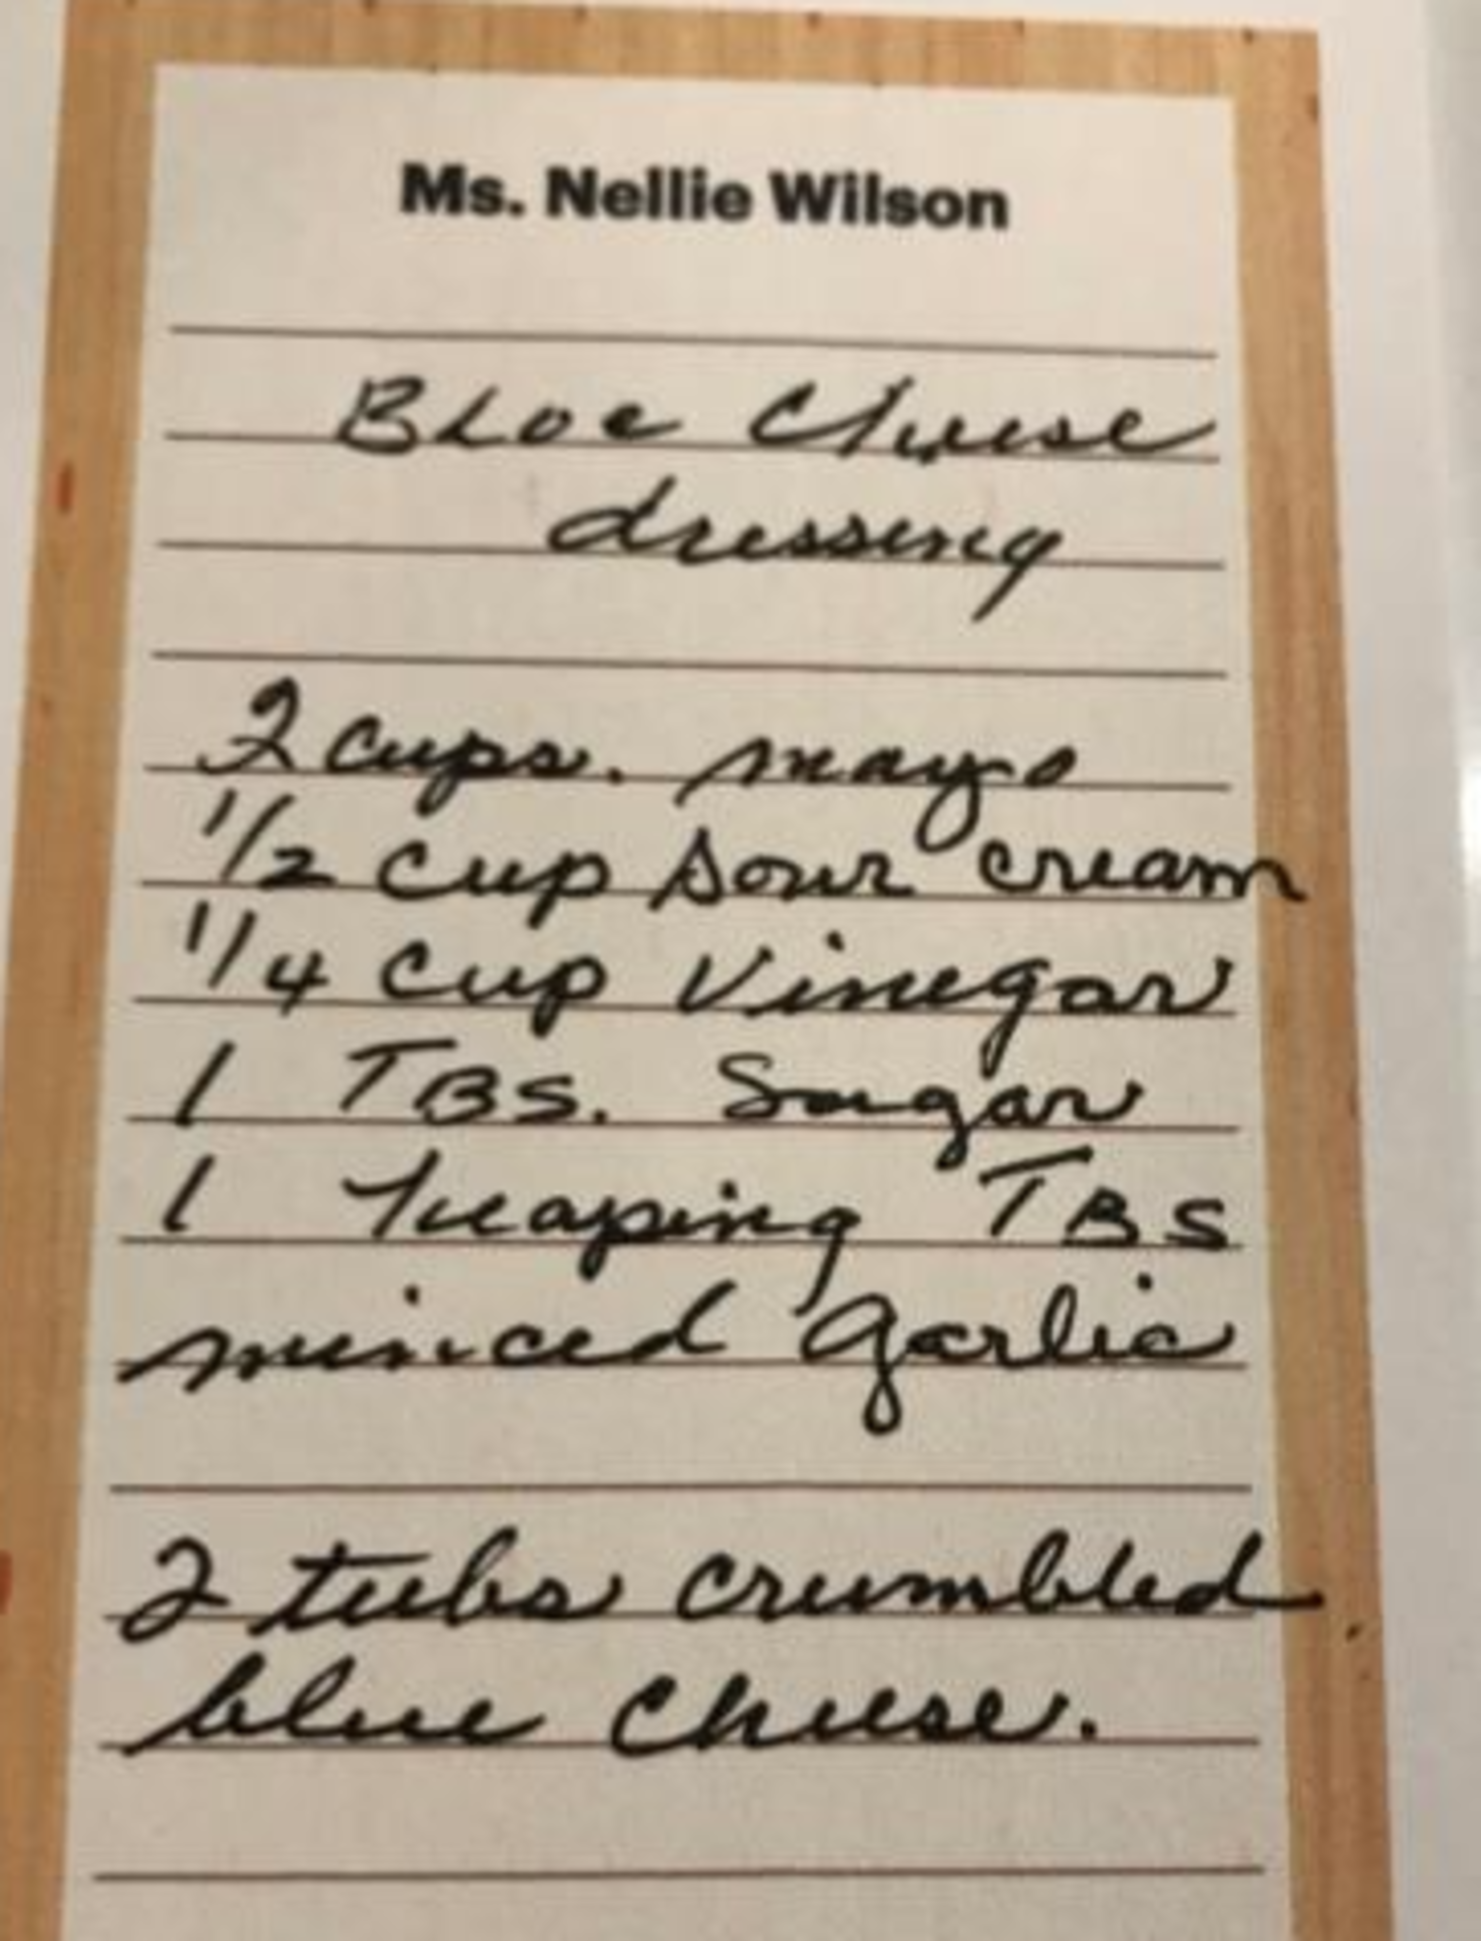 Ms. Nellie Wilson
Bloe Cheese
dressing
2 cups. mayo
1/2 cup sour cream
1/4 cup vinegar
1 TBS. Sugar
1 heaping TBS
minced garlic
2 tubs crumbled
blue cheese.